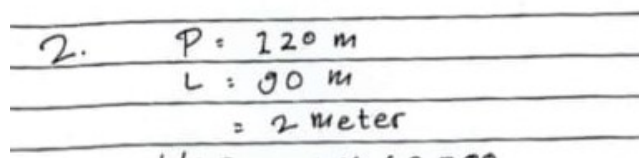 2. P = 120 m
L = 90 m
= 2 meter